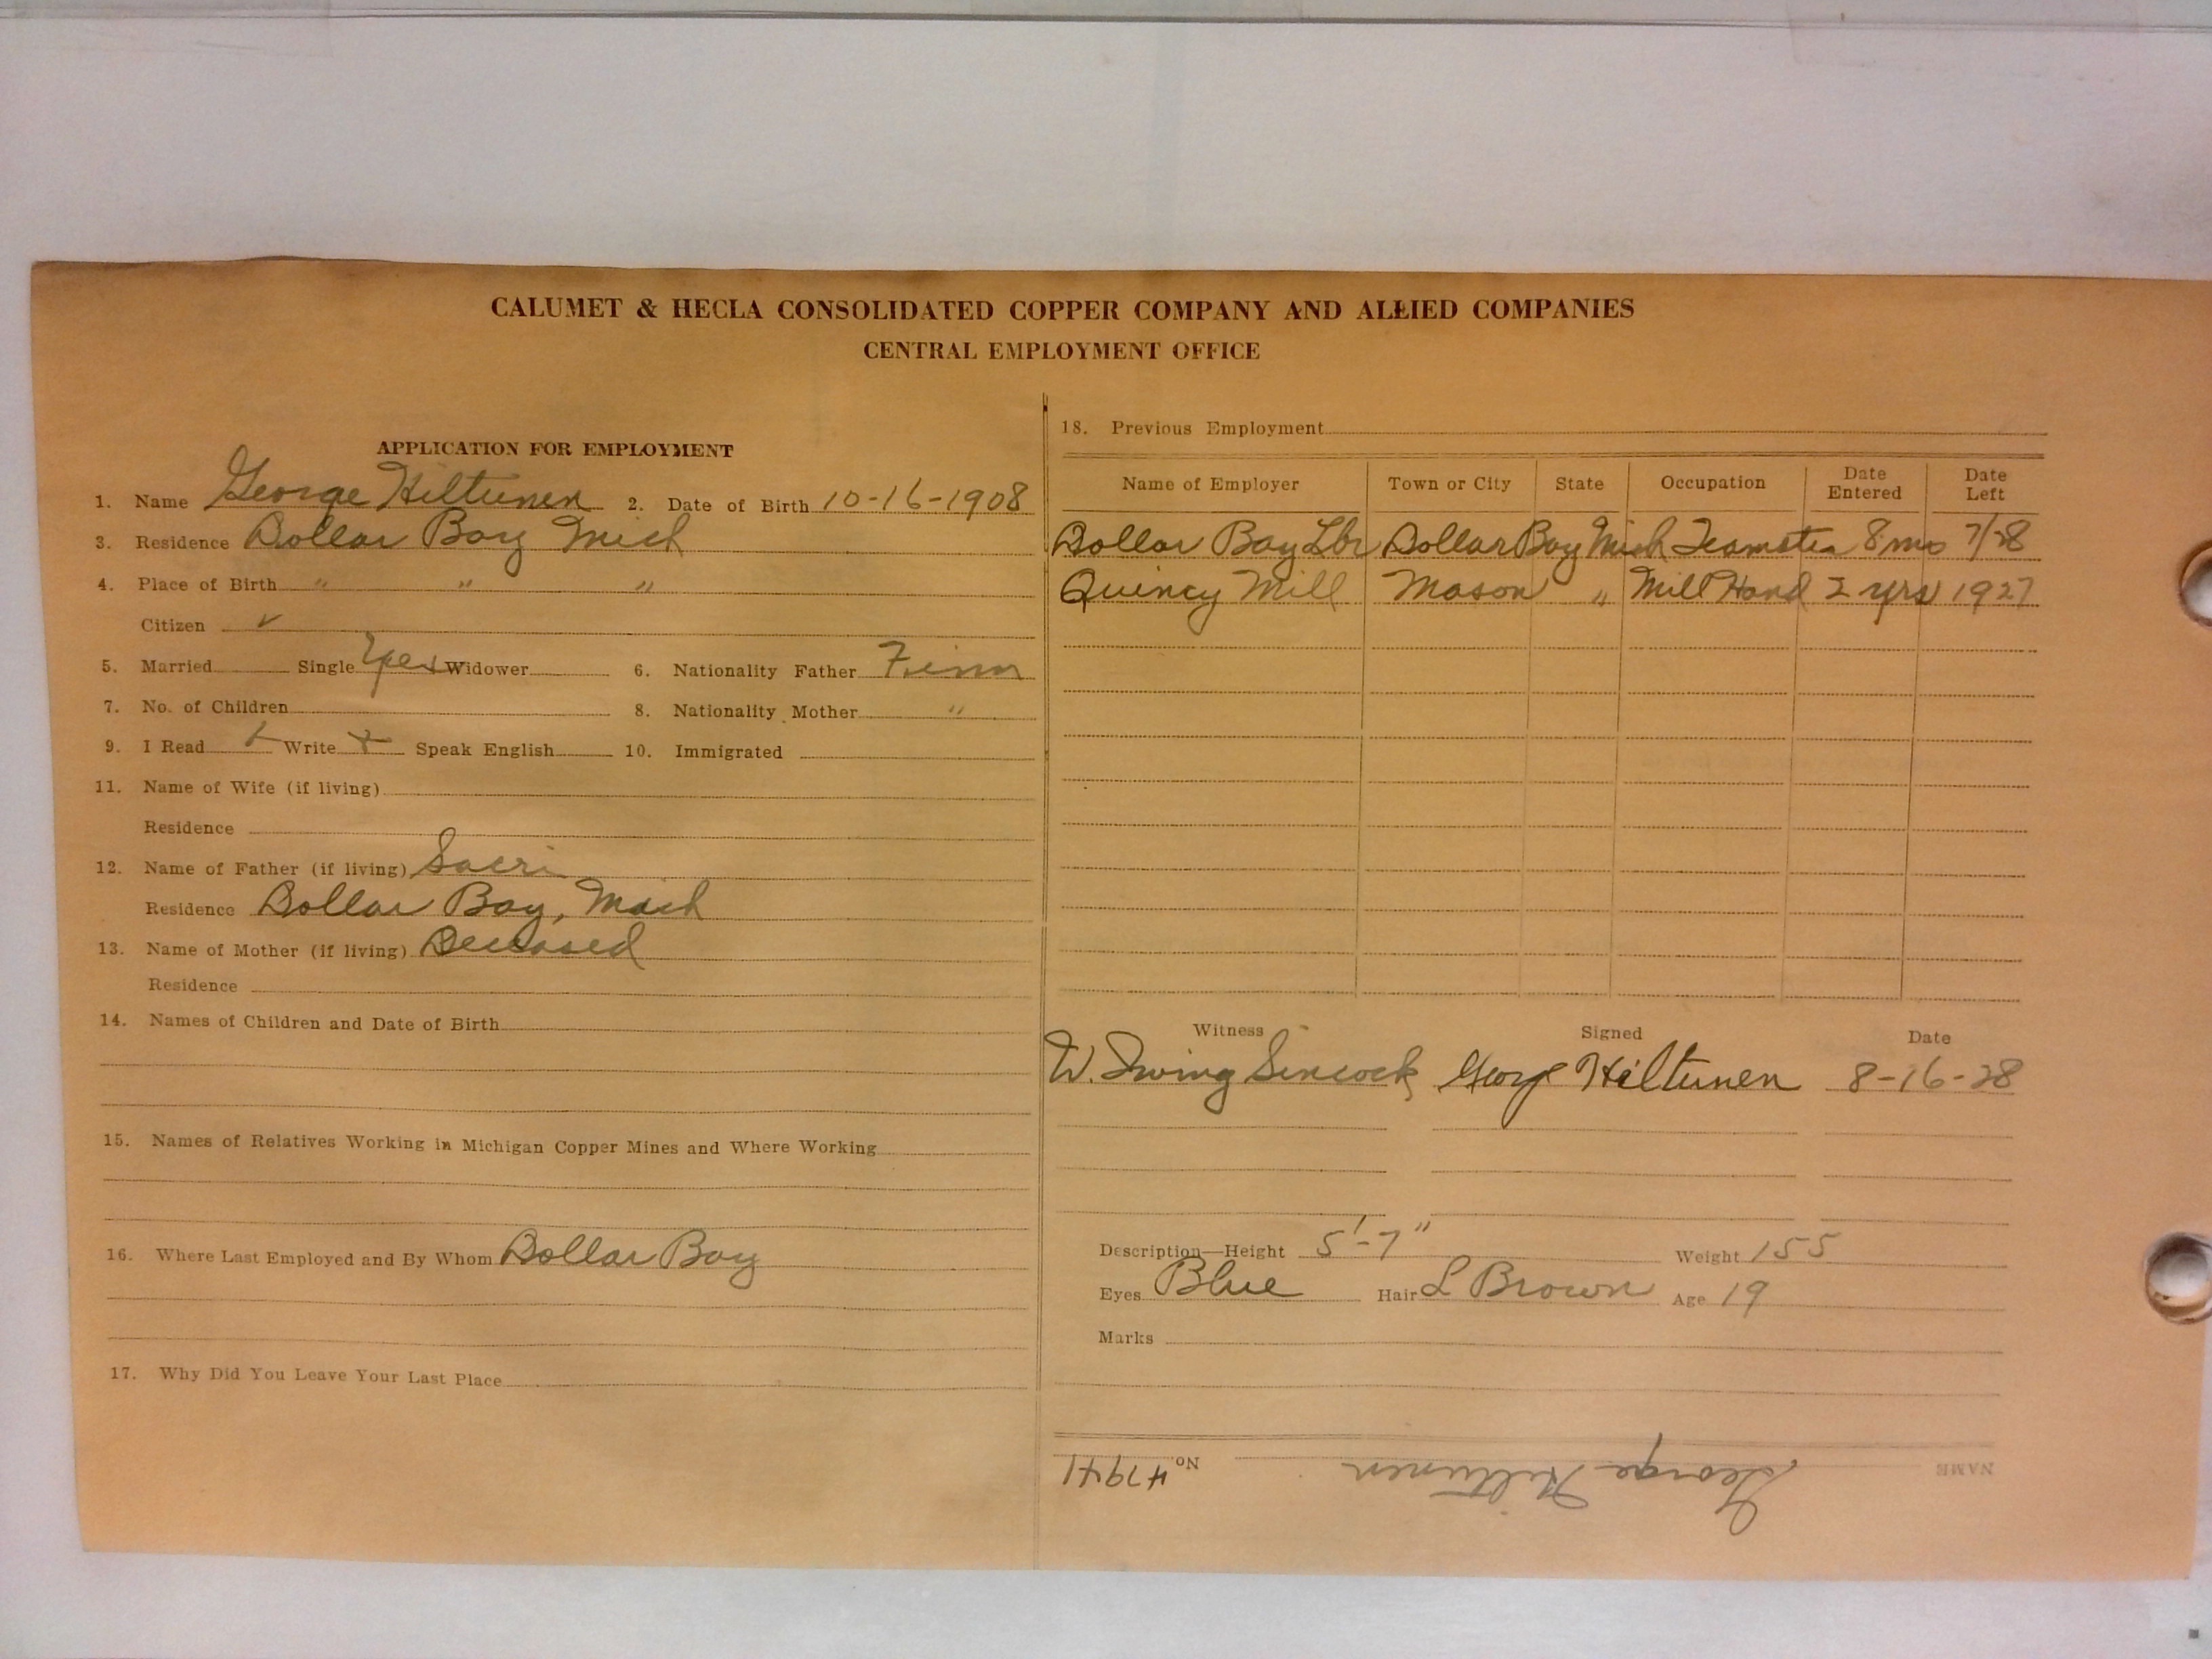 CALUMET & HECLA CONSOLIDATED COPPER COMPANY AND ALLIED COMPANIES
CENTRAL EMPLOYMENT OFFICE
APPLICATION FOR EMPLOYMENT
1. Name George Hiltunen 2. Date of Birth 10-16-1908
3. Residence Dollar Bay Mich
4. Place of Birth " " "
Citizen ✓
5. Married Single Yes Widower 6. Nationality Father Finn
7. No. of Children 8. Nationality Mother "
9. I Read Write Speak English 10. Immigrated
11. Name of Wife (if living)
Residence
12. Name of Father (if living) Sacri
Residence Dollar Bay, Mich
13. Name of Mother (if living) Deceased
Residence
14. Names of Children and Date of Birth
15. Names of Relatives Working in Michigan Copper Mines and Where Working
16. Where Last Employed and By Whom Dollar Bay
17. Why Did You Leave Your Last Place
18. Previous Employment
Name of Employer Town or City State Occupation Date Entered Date Left
Dollar Bay Lbr Dollar Bay Mich Teamster 8 mo 7/28
Quincy Mill Mason " Mill Hand 2 yrs 1927
Witness Signed Date
W. Irving Sincock George Hiltunen 8-16-28
Description—Height 5'-7" Weight 155
Eyes Blue Hair L Brown Age 19
Marks
NAME George Hiltunen No. 47941